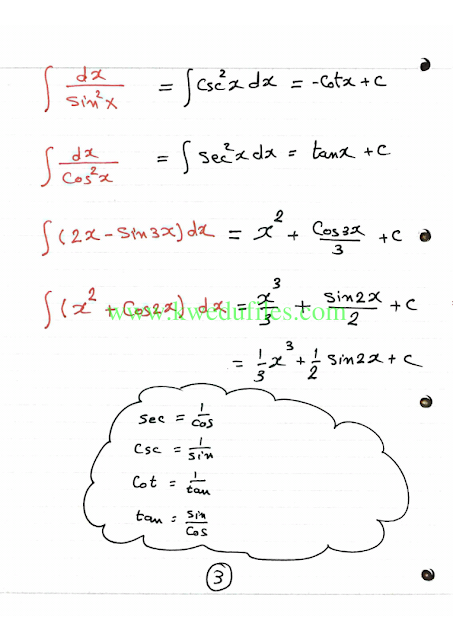 ∫ dx/sin²x = ∫ csc²x dx = -cotx + c
∫ dx/cos²x = ∫ sec²x dx = tanx + c
∫ (2x - sin3x) dx = x² + cos3x/3 + c
∫ (x² + cos2x) dx = x³/3 + sin2x/2 + c
www.kwedufiles.com
= 1/3 x³ + 1/2 sin2x + c
sec = 1/cos
csc = 1/sin
cot = 1/tan
tan = sin/cos
3